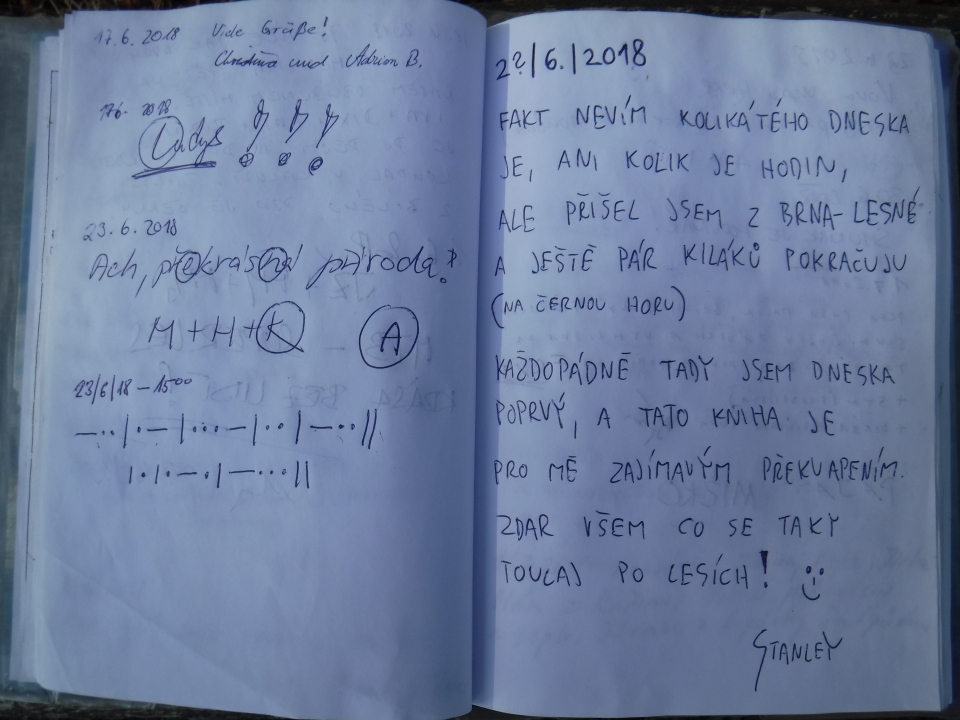 17.6.2018 Viele Grüße!
Christina und Adrian B.
17.6. 2018
Ladys !!!
23.6.2018
Ach, překrásná příroda!
M + H + K A
23/6/18 – 15⁰⁰
—··|·—|···—|··|—··||
|·|·—·|—···||
2?/6./2018
FAKT NEVÍM KOLIKÁTÉHO DNESKA
JE, ANI KOLIK JE HODIN,
ALE PŘIŠEL JSEM Z BRNA-LESNÉ
A JEŠTĚ PÁR KILÁKŮ POKRAČUJU
(NA ČERNOU HORU)
KAŽDOPÁDNĚ TADY JSEM DNESKA
POPRVÝ, A TATO KNIHA JE
PRO MĚ ZAJÍMAVÝM PŘEKVAPENÍM.
ZDAR VŠEM CO SE TAKY
TOULAJ PO LESÍCH!
STANLEY